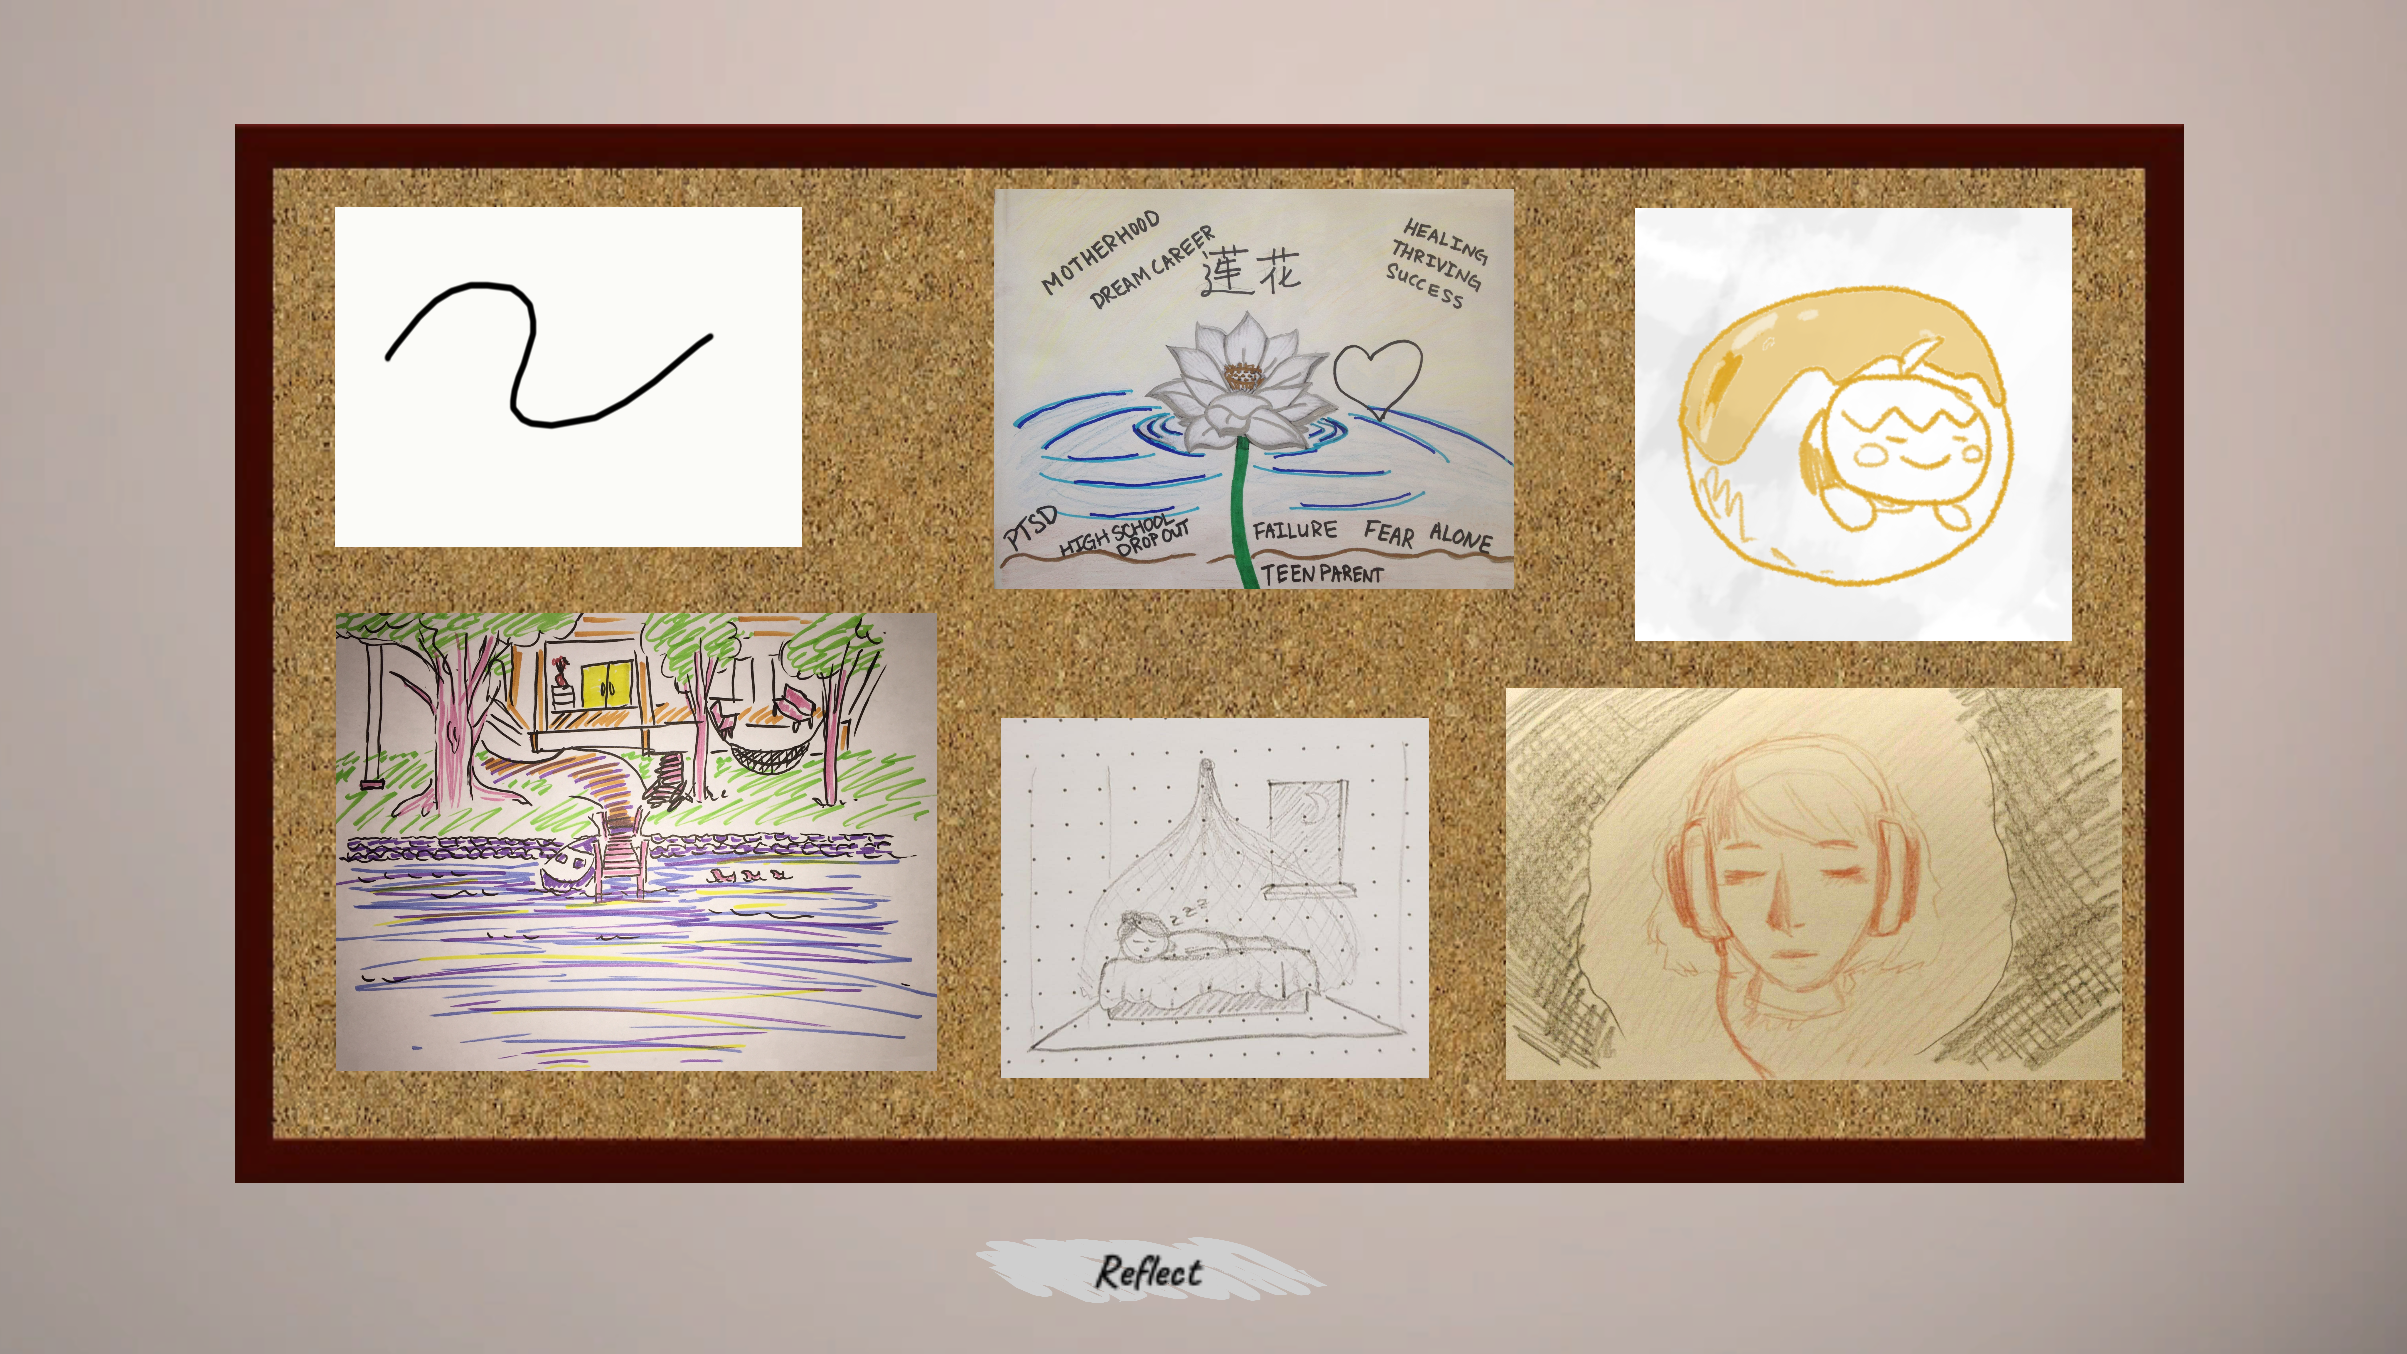 MOTHERHOOD
DREAM CAREER
蓮花
HEALING
THRIVING
SUCCESS
PTSD
HIGH SCHOOL
DROP OUT
FAILURE
FEAR
ALONE
TEEN PARENT
z z z
Reflect